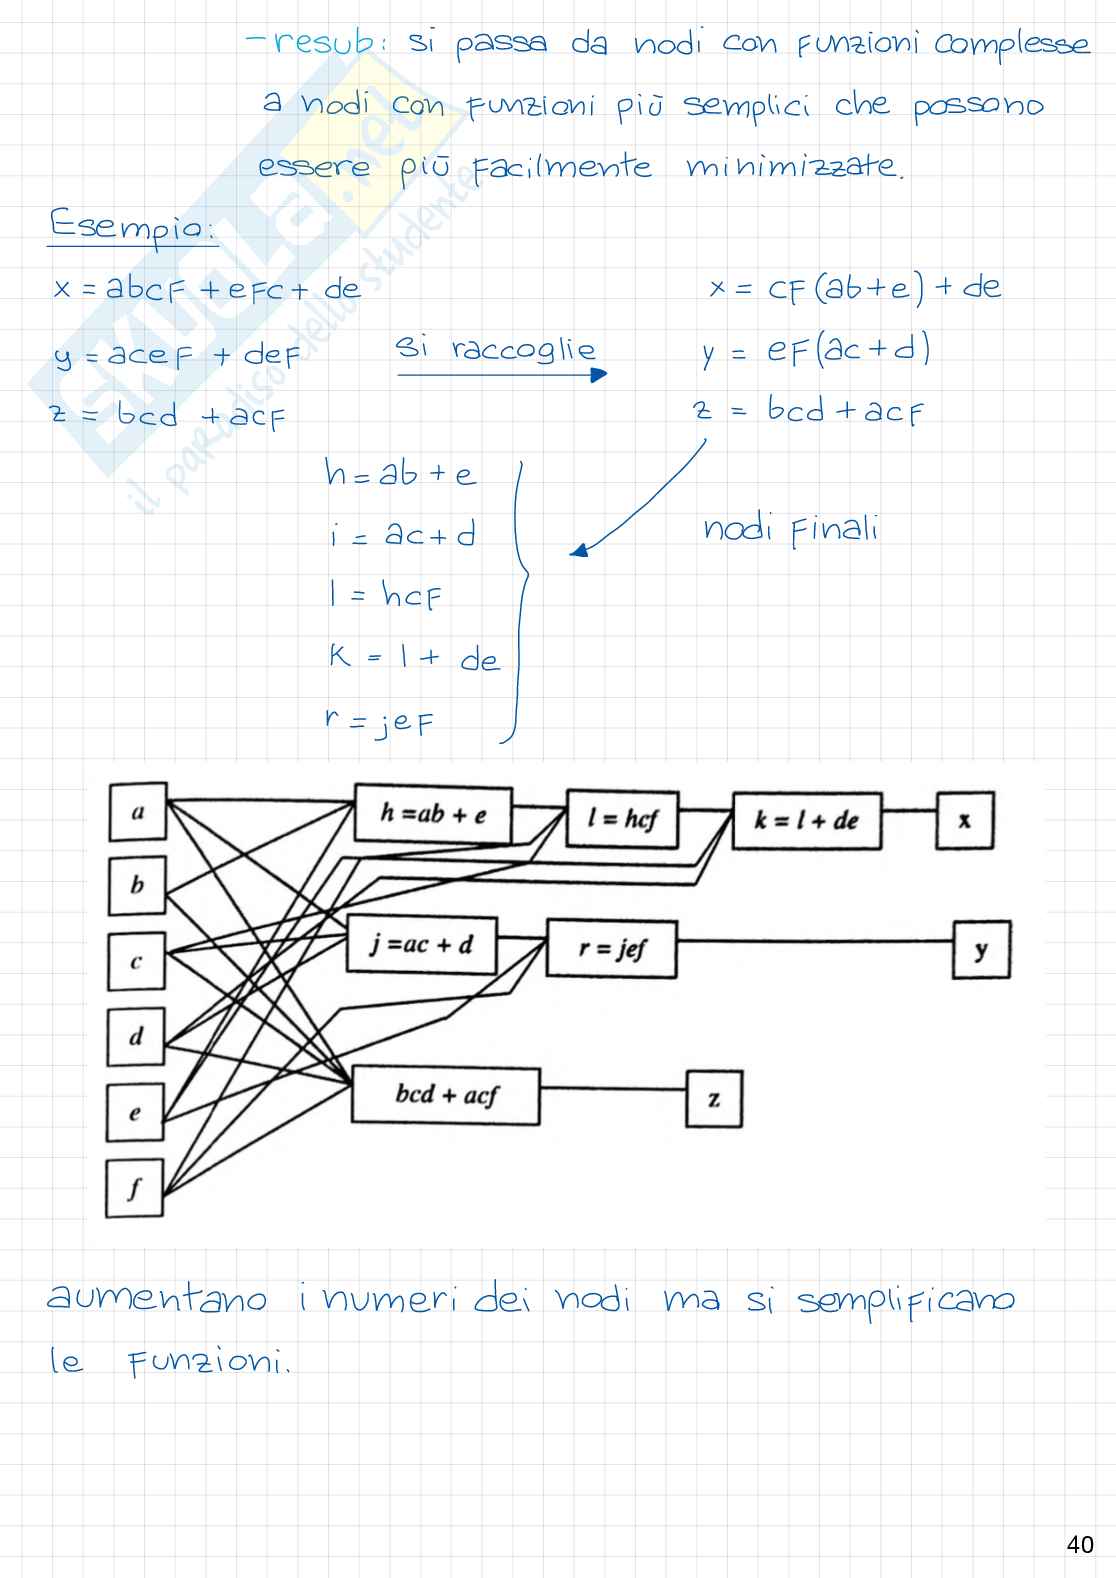 -resub: si passa da nodi con funzioni complesse
a nodi con funzioni più semplici che possono
essere più facilmente minimizzate.
Esempio:
x = abcf + efc + de
x = cf(ab+e) + de
y = acef + def
si raccoglie
y = ef(ac+d)
z = bcd + acf
z = bcd + acf
h = ab + e
i = ac + d
nodi finali
l = hcf
k = l + de
r = jef
a
h =ab + e
l = hcf
k = l + de
x
b
c
j =ac + d
r = jef
y
d
e
bcd + acf
z
f
aumentano i numeri dei nodi ma si semplificano
le funzioni.
SKUOLA.net
il paradiso dello studente
40